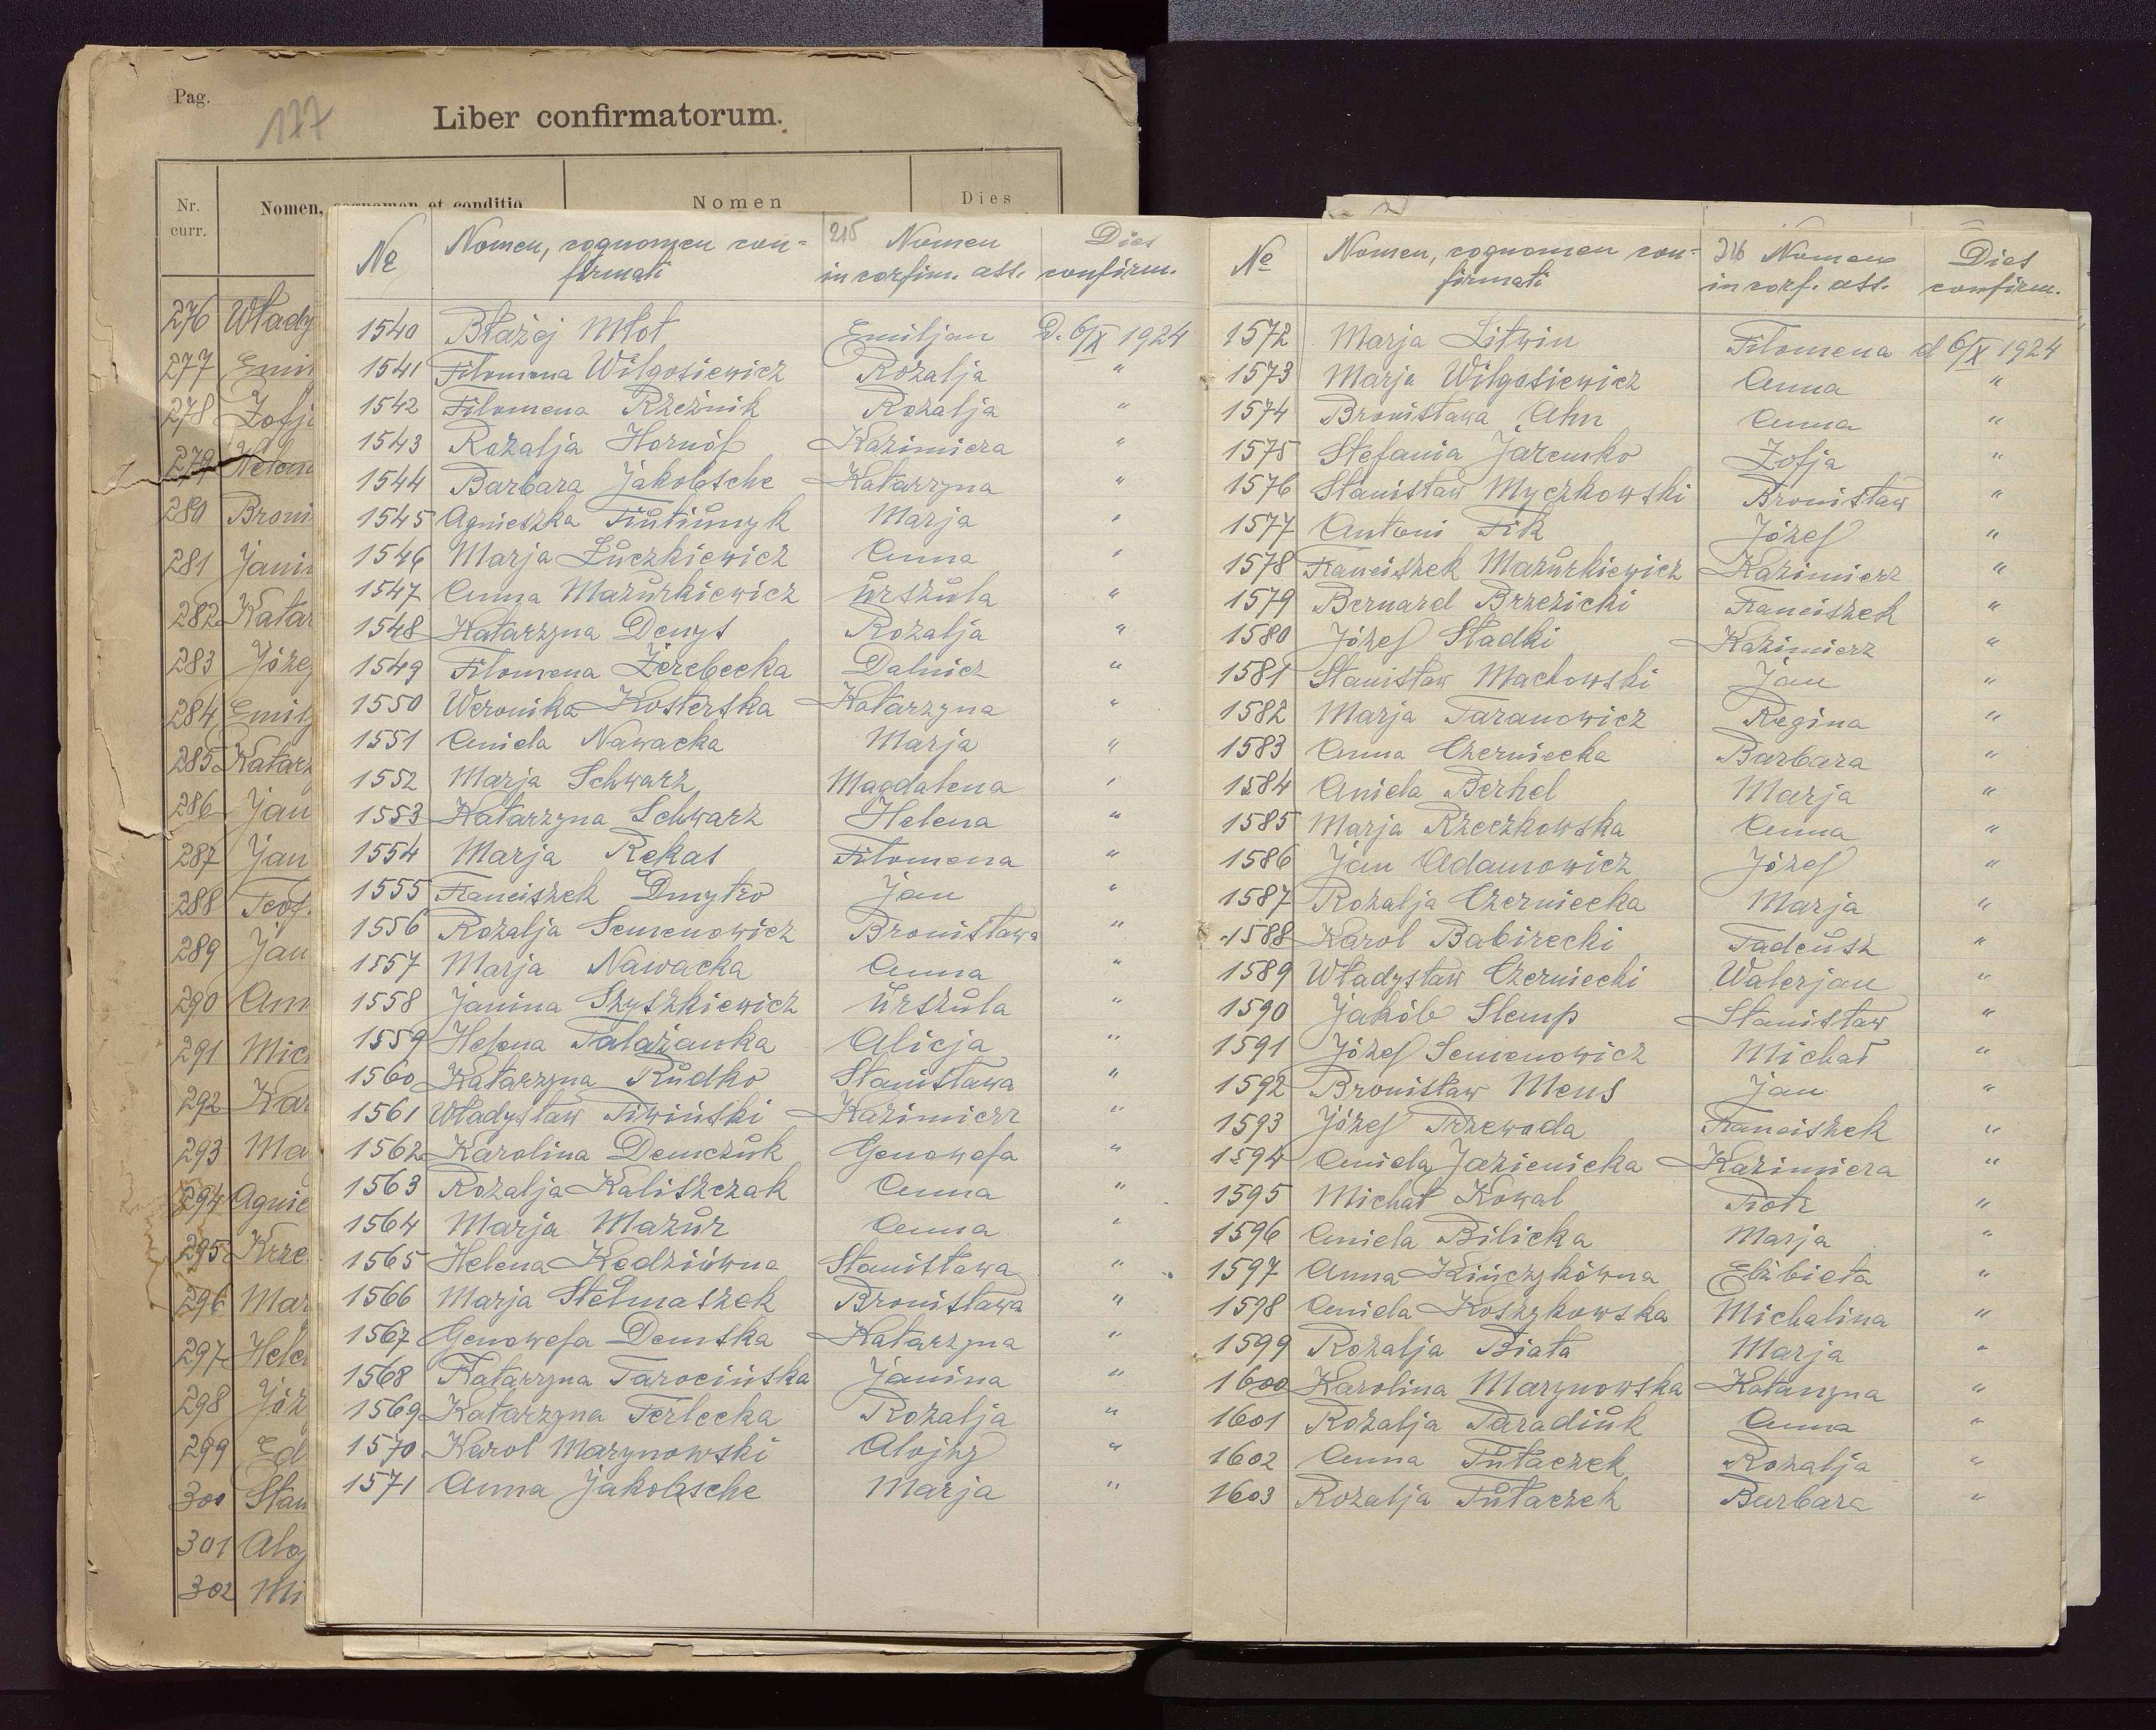 Pag.
177
Liber confirmatorum.
Nr. curr.
Nomen, cognomen et conditio
Nomen
Dies
276 Włady
277 Emi
278 Zofj
279 Helen
280 Broni
281 Jani
282 Katar
283 Józe
284 Emil
285 Katar
286 Jan
287 Jan
288 Teof
289 Jan
290 Ann
291 Mic
292 Kar
293 Ma
294 Agnie
295 Krze
296 Mar
297 Hele
298 Józ
299 Ed
300 Stan
301 Aloj
302 Mi
215
№ Nomen, cognomen con- Nomen Dies
firmati in confirm. ass. confirm.
1540 Błażej Młot Emiljan D. 6/X 1924
1541 Filomena Wilgosiewicz Rozalja "
1542 Filomena Rzeźnik Rozalja "
1543 Rozalja Hornóf Kazimiera "
1544 Barbara Jakobsche Katarzyna "
1545 Agnieszka Tiutiunnyk Marja "
1546 Marja Łuczkiewicz Anna "
1547 Anna Mazurkiewicz Urszula "
1548 Katarzyna Denys Rozalja "
1549 Filomena Żerebecka "
1550 Weronika Kosterska Katarzyna "
1551 Aniela Nawacka Marja "
1552 Marja Schwarz Magdalena "
1553 Katarzyna Schwarz Helena "
1554 Marja Rekas Filomena "
1555 Franciszek Dmytro Jan "
1556 Rozalja Semenowicz Bronisława "
1557 Marja Nawacka Anna "
1558 Janina Szyszkiewicz Urszula "
1559 Helena Talażanka Alicja "
1560 Katarzyna Rudko Stanisława "
1561 Władysław Piwiński Kazimierz "
1562 Karolina Demczuk Genowefa "
1563 Rozalja Kaliszczak Anna "
1564 Marja Mazur Anna "
1565 Helena Kedziówna Stanisława "
1566 Marja Stelmaszek Bronisława "
1567 Genowefa Demska Katarzyna "
1568 Katarzyna Tarocińska Janina "
1569 Katarzyna Terlecka Rozalja "
1570 Karol Marynowski Alojzy "
1571 Anna Jakobsche Marja "
216
№ Nomen, cognomen con- Nomen Dies
firmati in conf. ass. confirm.
1572 Marja Litwin Filomena d 6/X 1924
1573 Marja Wilgosiewicz Anna "
1574 Bronisława Ahn Anna "
1575 Stefania Jaremko Zofja "
1576 Stanisław Myczkowski Bronisław "
1577 Antoni Fik Józef "
1578 Franciszek Mazurkiewicz Kazimierz "
1579 Bernard Brzezicki Franciszek "
1580 Józef Sładki Kazimierz "
1581 Stanisław Machowski Jan "
1582 Marja Taranowicz Regina "
1583 Anna Czerniecka Barbara "
1584 Aniela Berkel Marja "
1585 Marja Rzeczkowska Anna "
1586 Jan Adamowicz Józef "
1587 Rozalja Czerniecka Marja "
1588 Karol Babirecki Tadeusz "
1589 Władysław Czerniecki Walerjan "
1590 Jakób Slemp Stanisław "
1591 Józef Semenowicz Michał "
1592 Bronisław Mens Jan "
1593 Józef Przewoda Franciszek "
1594 Aniela Jazienicka Kazimiera "
1595 Michał Kowal Piotr "
1596 Aniela Bilicka Marja "
1597 Anna Kińczykówna Elżbieta "
1598 Aniela Koszykowska Michalina "
1599 Rozalja Biała Marja "
1600 Karolina Marynowska Katarzyna "
1601 Rozalja Paradiuk Anna "
1602 Anna Tutaczek Rozalja "
1603 Rozalja Tutaczek Barbara "